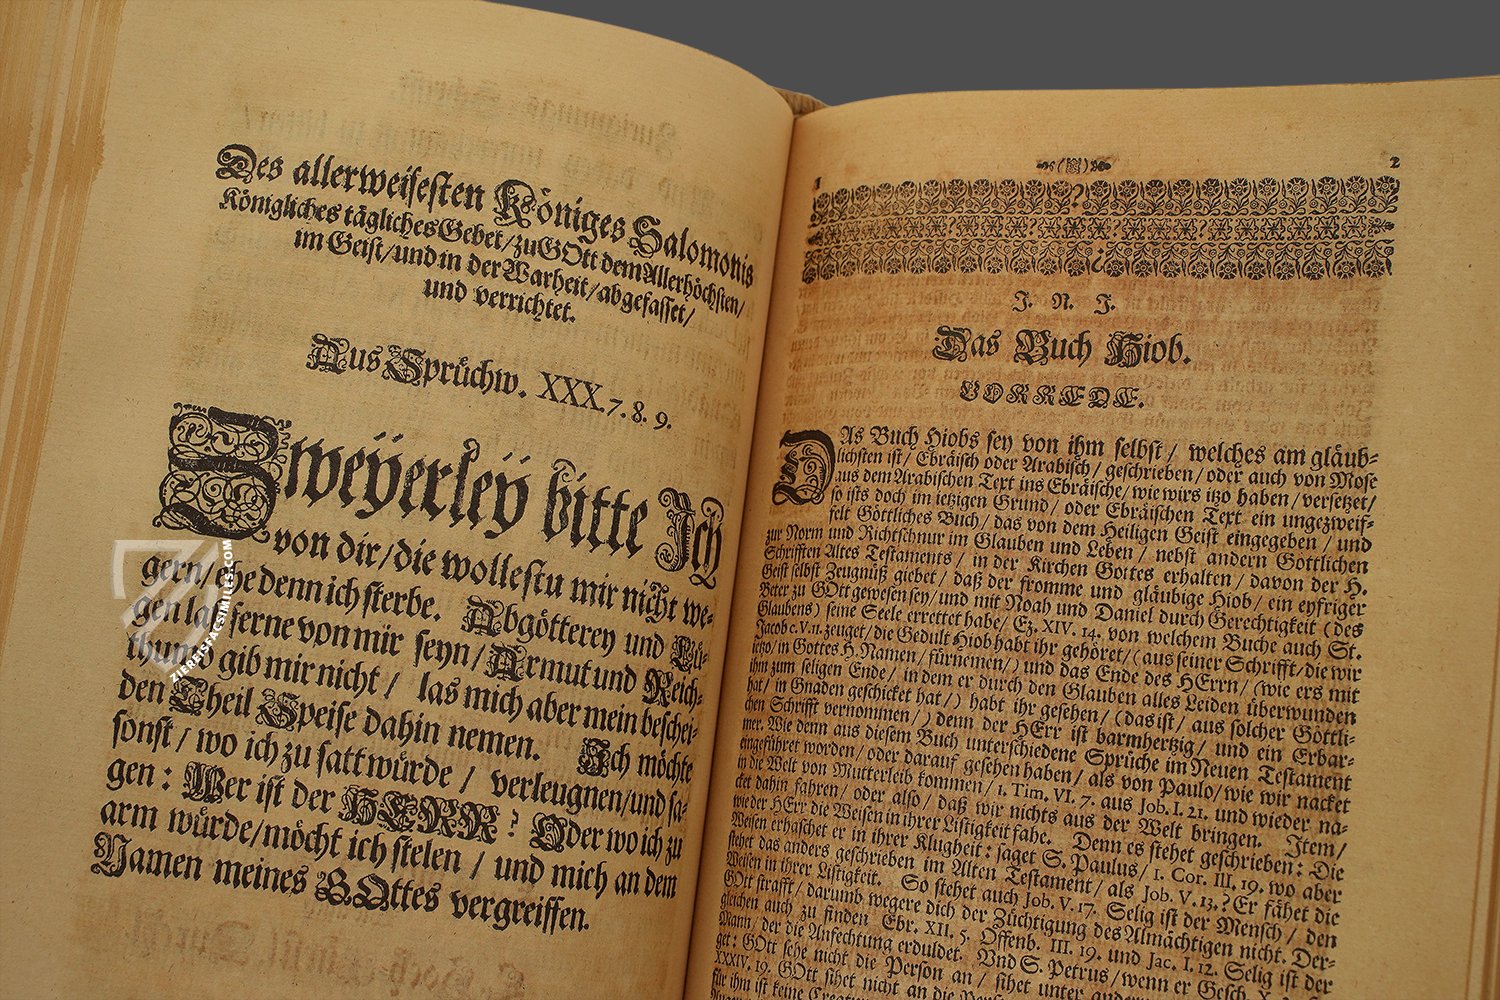 Des allerweisesten Königes Salomonis
Königliches tägliches Gebet/zu GOtt dem Allerhöchsten/
im Geist/und in der Warheit/abgefasset/
und verrichtet.
Aus Sprüchw. XXX.7.8.9.
Zweÿerleÿ bitte Ich
von dir/die wollestu mir nicht we-
gern/ehe denn ich sterbe. Abgötterey und Lü-
gen laß ferne von mir seyn/Armut und Reich-
thum gib mir nicht / las mich aber mein beschei-
den Theil Speise dahin nemen. Ich möchte
sonst / wo ich zu satt würde / verleugnen/und sa-
gen: Wer ist der HERR? Oder wo ich zu
arm würde/möcht ich stelen / und mich an dem
Namen meines GOttes vergreiffen.
ZIEREISFACSIMILES.COM
1 2
J. N. J.
Das Buch Hiob.
VORREDE.
DAs Buch Hiobs sey von ihm selbst / welches am gläub-
lichsten ist / Ebräisch oder Arabisch / geschrieben / oder auch von Mose
aus dem Arabischen Text ins Ebräische/ wie wirs itzo haben/ versetzet/
so ists doch im ietzigen Grund/ oder Ebräischen Text ein ungezweif-
felt Göttliches Buch / das von dem Heiligen Geist eingegeben / und
zur Norm und Richtschnur im Glauben und Leben / nebst andern Göttlichen
Schrifften Altes Testaments / in der Kirchen Gottes erhalten / davon der H.
Geist selbst Zeugnüß giebet / daß der fromme und gläubige Hiob / ein eyfriger
Beter zu GOtt gewesen sey / und mit Noah und Daniel durch Gerechtigkeit (des
Glaubens) seine Seele errettet habe/ Ez. XIV. 14. von welchem Buche auch St.
Jacob c. V. 11. zeuget / die Gedult Hiob habt ihr gehöret/ (aus seiner Schrifft/die wir
ietzo/ in Gottes H. Namen/ fürnemen/) und das Ende des HErrn/ (wie ers mit
ihm zum seligen Ende/ in dem er durch den Glauben alles Leiden überwunden
hat/ in Gnaden geschicket hat/) habt ihr gesehen/ (das ist / aus solcher Göttli-
chen Schrifft vernommen/) denn der HErr ist barmhertzig/ und ein Erbar-
mer. Wie denn aus diesem Buch unterschiedene Sprüche im Neuen Testament
eingeführet worden/ oder darauf gesehen haben/ als von Paulo/ wie wir nacket
in die Welt von Mutterleib kommen/ 1. Tim. VI. 7. aus Job. I. 21. und wieder na-
cket dahin fahren/ oder also/ daß wir nichts aus der Welt bringen. Item/
wie der HErr die Weisen in ihrer Listigkeit fahe. Denn es stehet geschrieben: Die
Weisen erhaschet er in ihrer Klugheit: saget S. Paulus/ 1. Cor. III. 19. wo aber
stehet das anders geschrieben im Alten Testament/ als Job. V. 13.? Er fähet die
Weisen in ihrer Listigkeit. So stehet auch Job. V. 17. Selig ist der Mensch / den
GOtt strafft/ darumb wegere dich der Züchtigung des Allmächtigen nicht. Der-
gleichen auch zu finden Ebr. XII. 5. Offenb. III. 19. und Jac. I. 12. Selig ist der
Mann/ der die Anfechtung erduldet. Und S. Petrus/ wenn er Gesch. X.
get: GOtt sehe nicht die Person an / sihet unter
XXXIV. 19. GOtt sihet nicht an die
für ihm ist keine